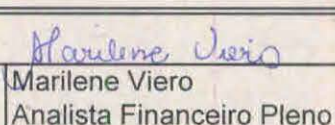 Marilene Viero
Marilene Viero
Analista Financeiro Pleno